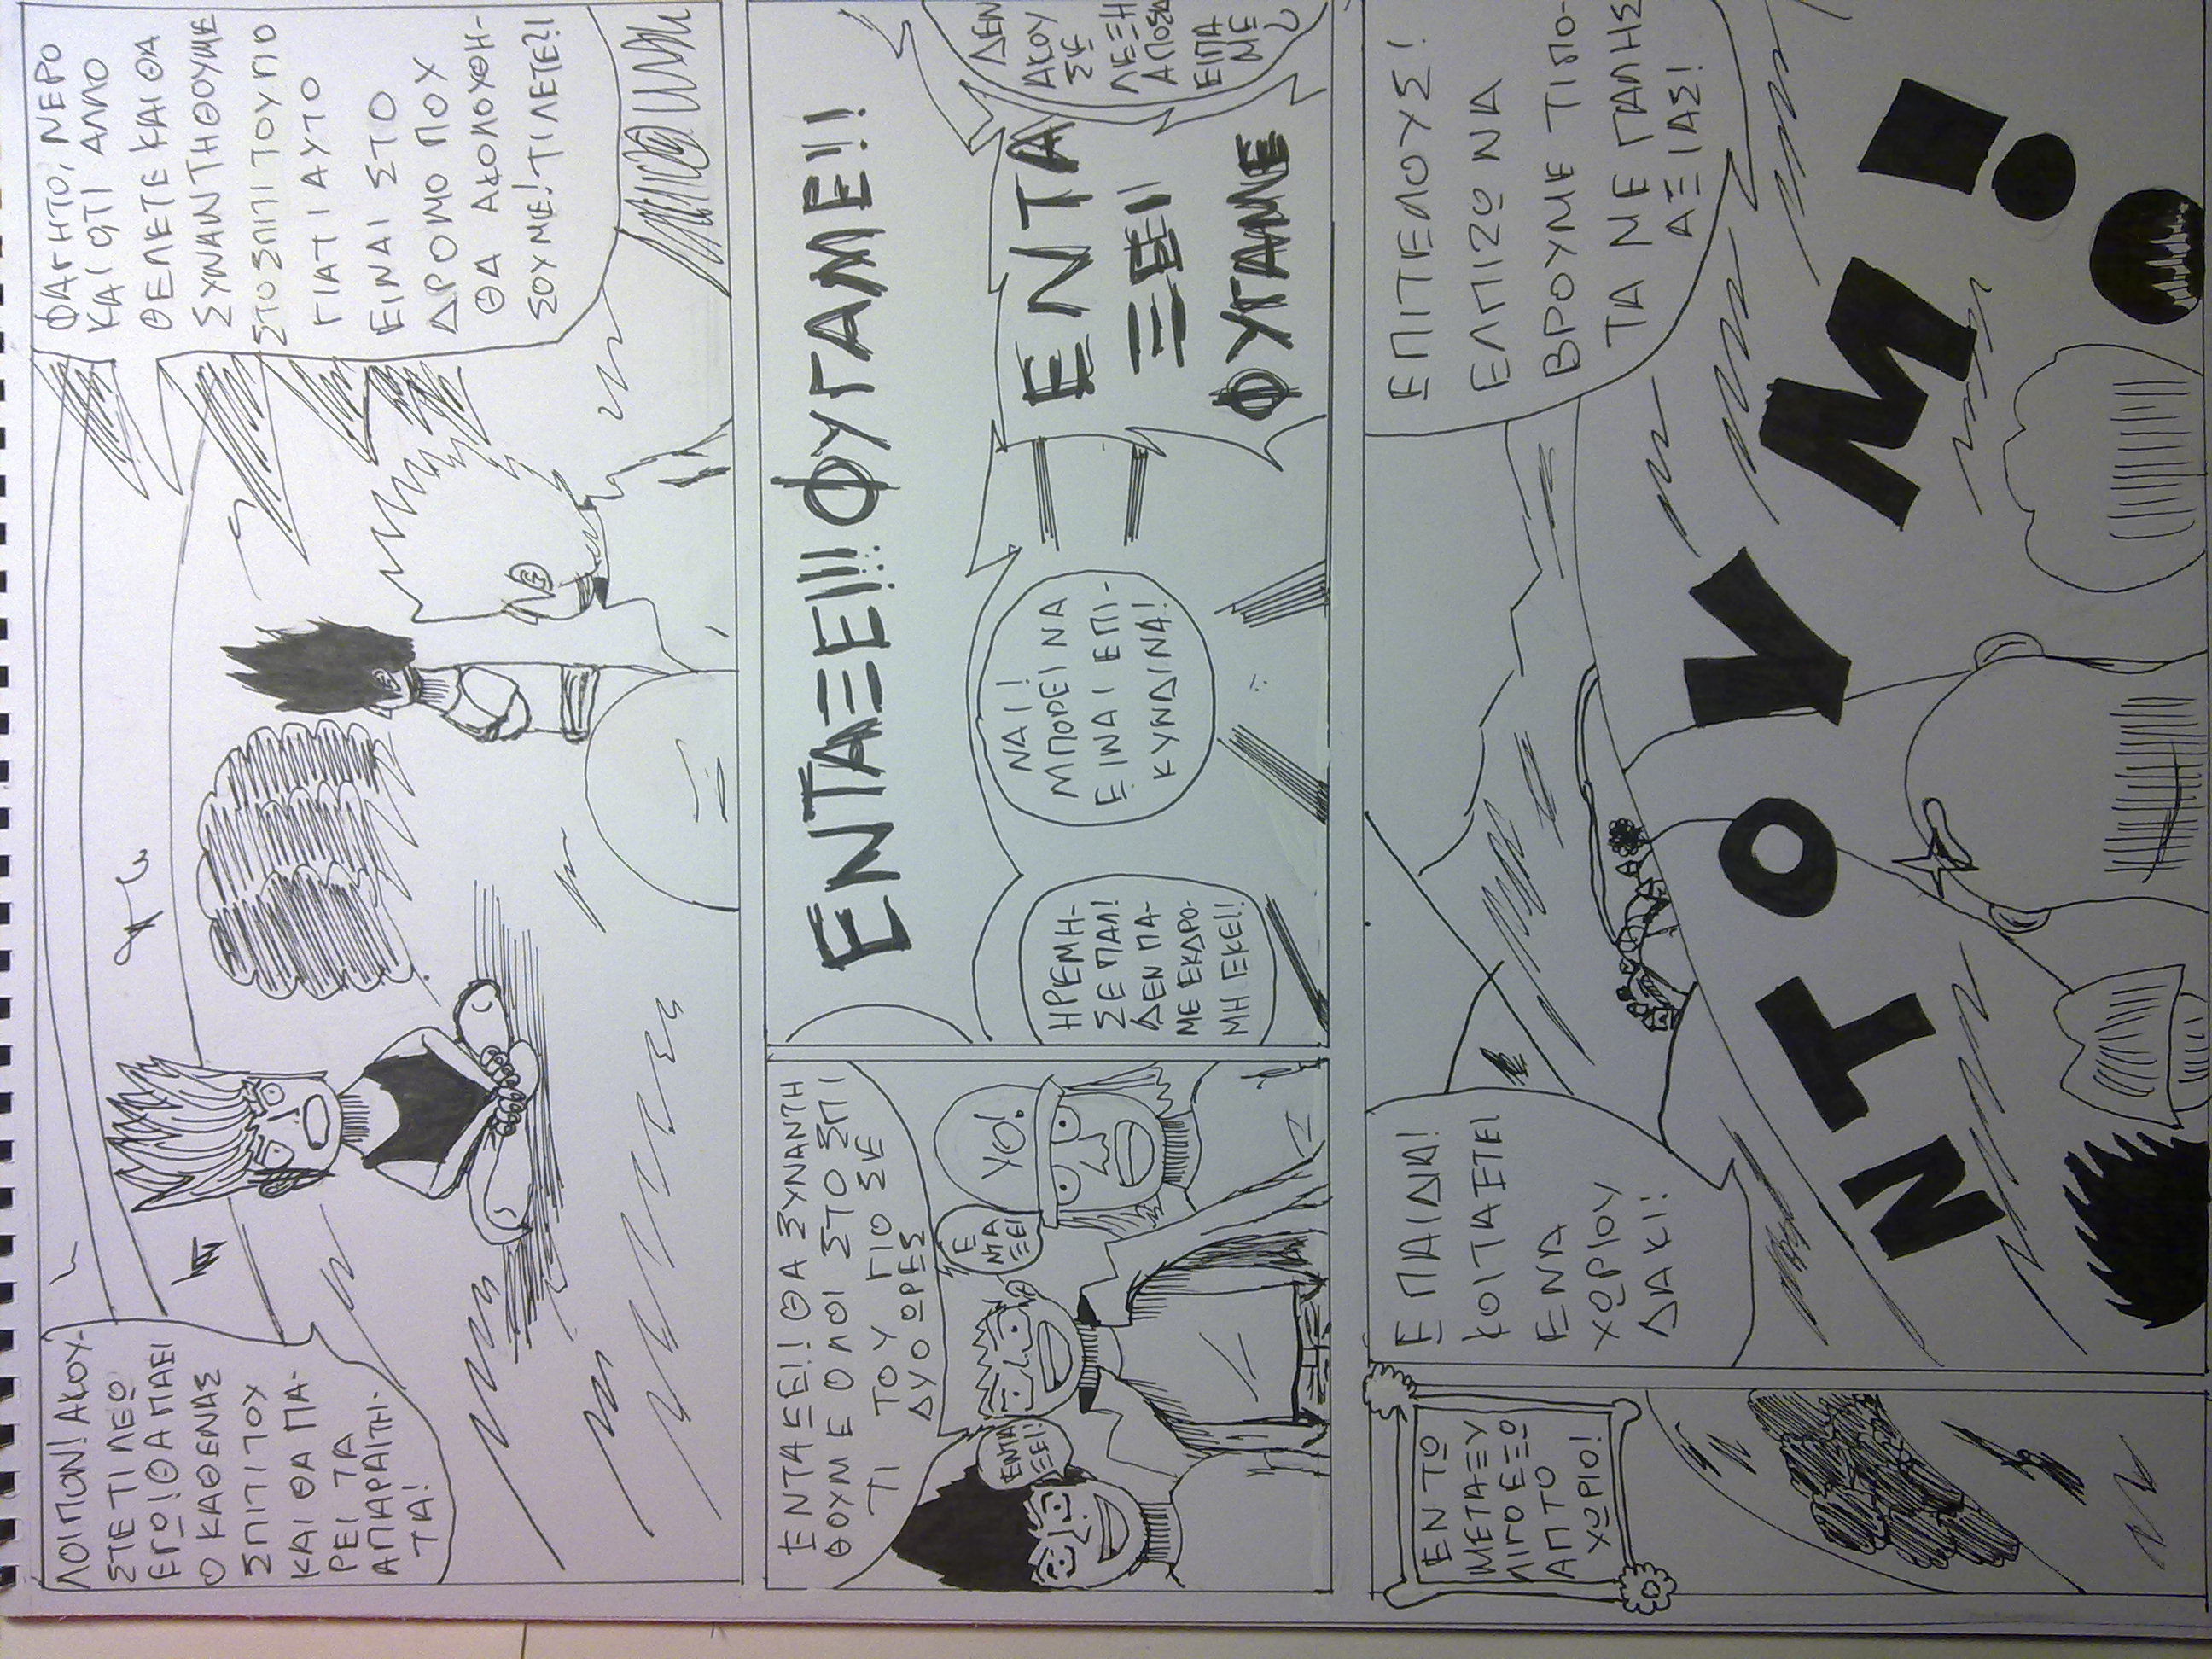 ΛΟΙΠΟΝ! ΑΚΟΥ-
ΣΤΕ ΤΙ ΛΕΩ
ΕΓΩ! ΘΑ ΠΑΕΙ
Ο ΚΑΘΕΝΑΣ
ΣΠΙΤΙ ΤΟΥ
ΚΑΙ ΘΑ ΠΑ-
ΡΕΙ ΤΑ
ΑΠΑΡΑΙΤΗ-
ΤΑ!
ΦΑΓΗΤΟ, ΝΕΡΟ
ΚΑΙ ΟΤΙ ΑΛΛΟ
ΘΕΛΕΤΕ ΚΑΙ ΘΑ
ΣΥΝΑΝΤΗΘΟΥΜΕ
ΣΤΟ ΣΠΙΤΙ ΤΟΥ ΓΙΟ
ΓΙΑΤΙ ΑΥΤΟ
ΕΙΝΑΙ ΣΤΟ
ΔΡΟΜΟ ΠΟΥ
ΘΑ ΑΚΟΛΟΥΘΗ-
ΣΟΥΜΕ! ΤΙ ΛΕΤΕ?!
ΕΝΤΑΞΕΙ! ΘΑ ΣΥΝΑΝΤΗ
ΘΟΥΜΕ ΟΛΟΙ ΣΤΟ ΣΠΙ
ΤΙ ΤΟΥ ΓΙΟ ΣΕ
ΔΥΟ ΩΡΕΣ
ΕΝΤΑ
ΞΕΙ!
Ε
ΝΤΑ
ΞΕΙ
YO!
ΕΝΤΑΞΕΙ!!! ΦΥΓΑΜΕ!!!
ΗΡΕΜΗ-
ΣΕ ΠΑΛ!
ΔΕΝ ΠΑ-
ΜΕ ΕΚΔΡΟ-
ΜΗ ΕΚΕΙ!
ΝΑΙ!
ΜΠΟΡΕΙ ΝΑ
ΕΙΝΑΙ ΕΠΙ-
ΚΥΝΔΙΝΑ!
ΕΝΤΑ
ΞΕΙ!
ΦΥΓΑΜΕ
ΔΕΝ
ΑΚΟΥ
ΣΕ
ΛΕΞΗ
ΑΠΟΣΑ
ΕΙΠΑ
ΜΕ
ΕΝ ΤΩ
ΜΕΤΑΞΥ
ΛΙΓΟ ΕΞΩ
ΑΠ ΤΟ
ΧΩΡΙΟ!
Ε ΠΑΙΔΙΑ!
ΚΟΙΤΑΞΤΕ!
ΕΝΑ
ΧΩΡΙΟΥ
ΔΑΚΙ!
ΕΠΙΤΕΛΟΥΣ!
ΕΛΠΙΖΩ ΝΑ
ΒΡΟΥΜΕ ΤΙΠΟ-
ΤΑ ΜΕΓΑΛΗΣ
ΑΞΙΑΣ!
ΝΤΟΥΜ!